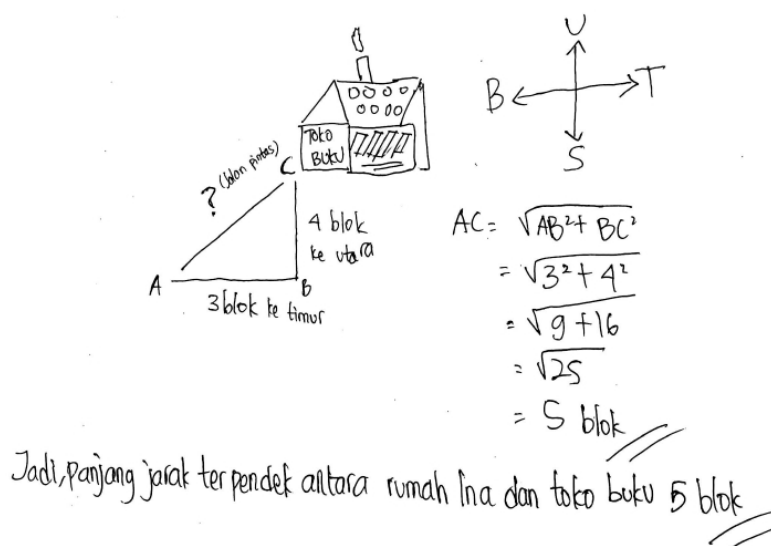 U
B T
S
TOKO
BUKU
? (Jalan pintas)
C
4 blok
ke utara
A
B
3 blok ke timur
AC = √AB² + BC²
= √3² + 4²
= √9 + 16
= √25
= 5 blok
Jadi, panjang jarak terpendek antara rumah Ina dan toko buku 5 blok